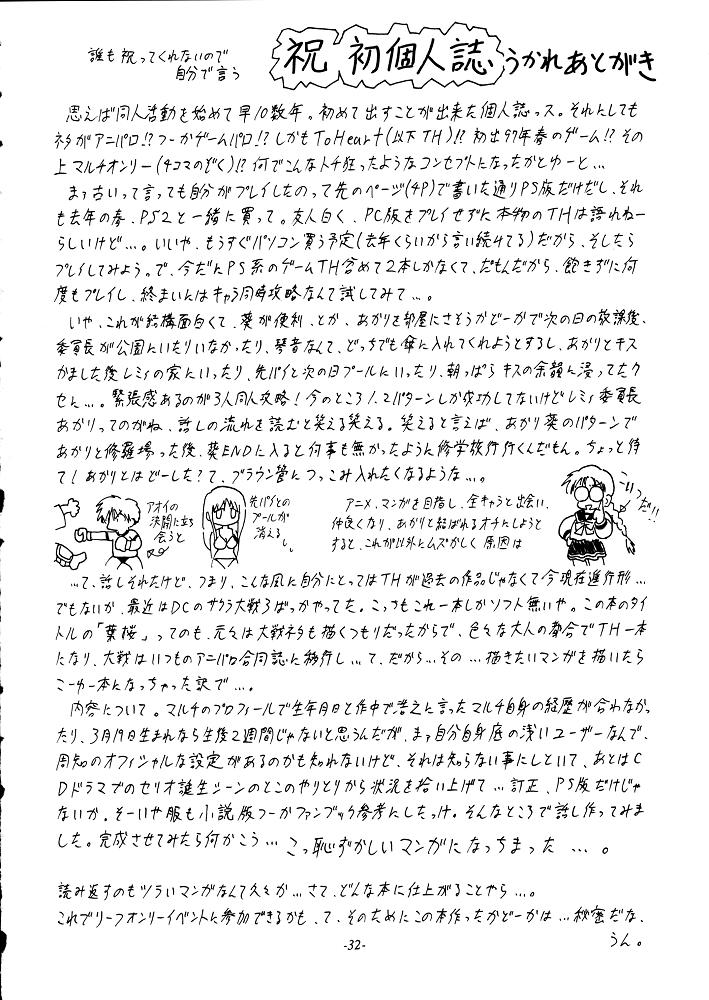 誰も祝ってくれないので
自分で言う
祝 初個人誌 うかれあとがき
思えば同人活動を始めて早10数年。初めて出すことが出来た個人誌っス。それにしても
ネタがアニパロ!?つーかゲームパロ!?しかもToHeart(以下TH)!?初出97年春のゲーム!?その
上マルチオンリー(4コマのぞく)!?何でこんなトチ狂ったようなコンセプトになったかとゆーと…
まぁ古いって言っても自分がプレイしたのって先のページ(4P)で書いた通りPS版だけだし、それ
も去年の春、PS2と一緒に買って。友人曰く、PC版をプレイせずに本物のTHは語れねー
らしいけど…。いいや、もうすぐパソコン買う予定(去年くらいから言い続けてる)だから、そしたら
プレイしてみよう。で、今だにPS系のゲームTH含めて2本しかなくて、だもんだから、飽きずに何
度もプレイし、終まいにはキャラ同時攻略なんて試してみて…。
いや、これが結構面白くて、葵が便利、とか、あかりを部屋にさそうかどーかで次の日の放課後、
委員長が公園にいたりいなかったり、琴音なんて、どっちでも傘に入れてくれようとするし、あかりとキス
かました後レミィの家にいったり、先パイと次の日プールにいったり、朝っぱらキスの余韻に浸ってたク
セに…。緊張感あるのが3人同人攻略!今のところ1、2パターンしか成功してないけどレミィ委員長
あかりってのがね、話しの流れを読むと笑える笑える。笑えると言えば、あかり葵のパターンで
あかりと修羅場った後、葵ENDに入ると何事も無かったように修学旅行行くんだもん。ちょっと待
て!あかりとはどーした?て、ブラウン管につっこみ入れたくなるような…。
アオイの
決闘に立ち
会うと
先パイとの
プールが
消える
アニメ、マンガを目指し、全キャラと出会い、
仲良くなり、あかりと結ばれるオチにしようと
すると、これが以外にムズかしく原因は
だ!!
…て、話しそれたけど、つまり、こんな風に自分にとってはTHが過去の作品じゃなくて今現在進行形…
でもないか、最近はDCのサクラ大戦3ばっかやってた。こっちもこれ一本しかソフト無いや。この本のタイ
トルの「葉桜」っても、元々は大戦ネタも描くつもりだったからで、色々な大人の都合でTH一本
になり、大戦はいつものアニパロ合同誌に移行し…て、だから…その…描きたいマンガを描いたら
こーゆー本になっちゃった訳で…。
内容について。マルチのプロフィールで生年月日と作中で浩之に言ったマルチ自身の経歴が合わなか
ったり、3月19日生まれなら生後2週間じゃないと思うんだが、まぁ自分自身底の浅いユーザーなんで、
周知のオフィシャルな設定があるのかも知れないけど、それは知らない事にしといて、あとはC
Dドラマでのセリオ誕生シーンのとこのやりとりから状況を拾い上げて…訂正、PS版だけじゃ
ないか。そーいや服も小説版つーかファンブック参考にしたっけ。そんなところで話し作ってみま
した。完成させてみたら何かこう… こっ恥ずかしいマンガになっちまった…。
読み返すのもツラいマンガなんて久々か…さて、どんな本に仕上がることやら…。
これでリーフオンリーイベントに参加できるかも、て、そのためにこの本作ったかどーかは…秘密だな、
うん。
-32-